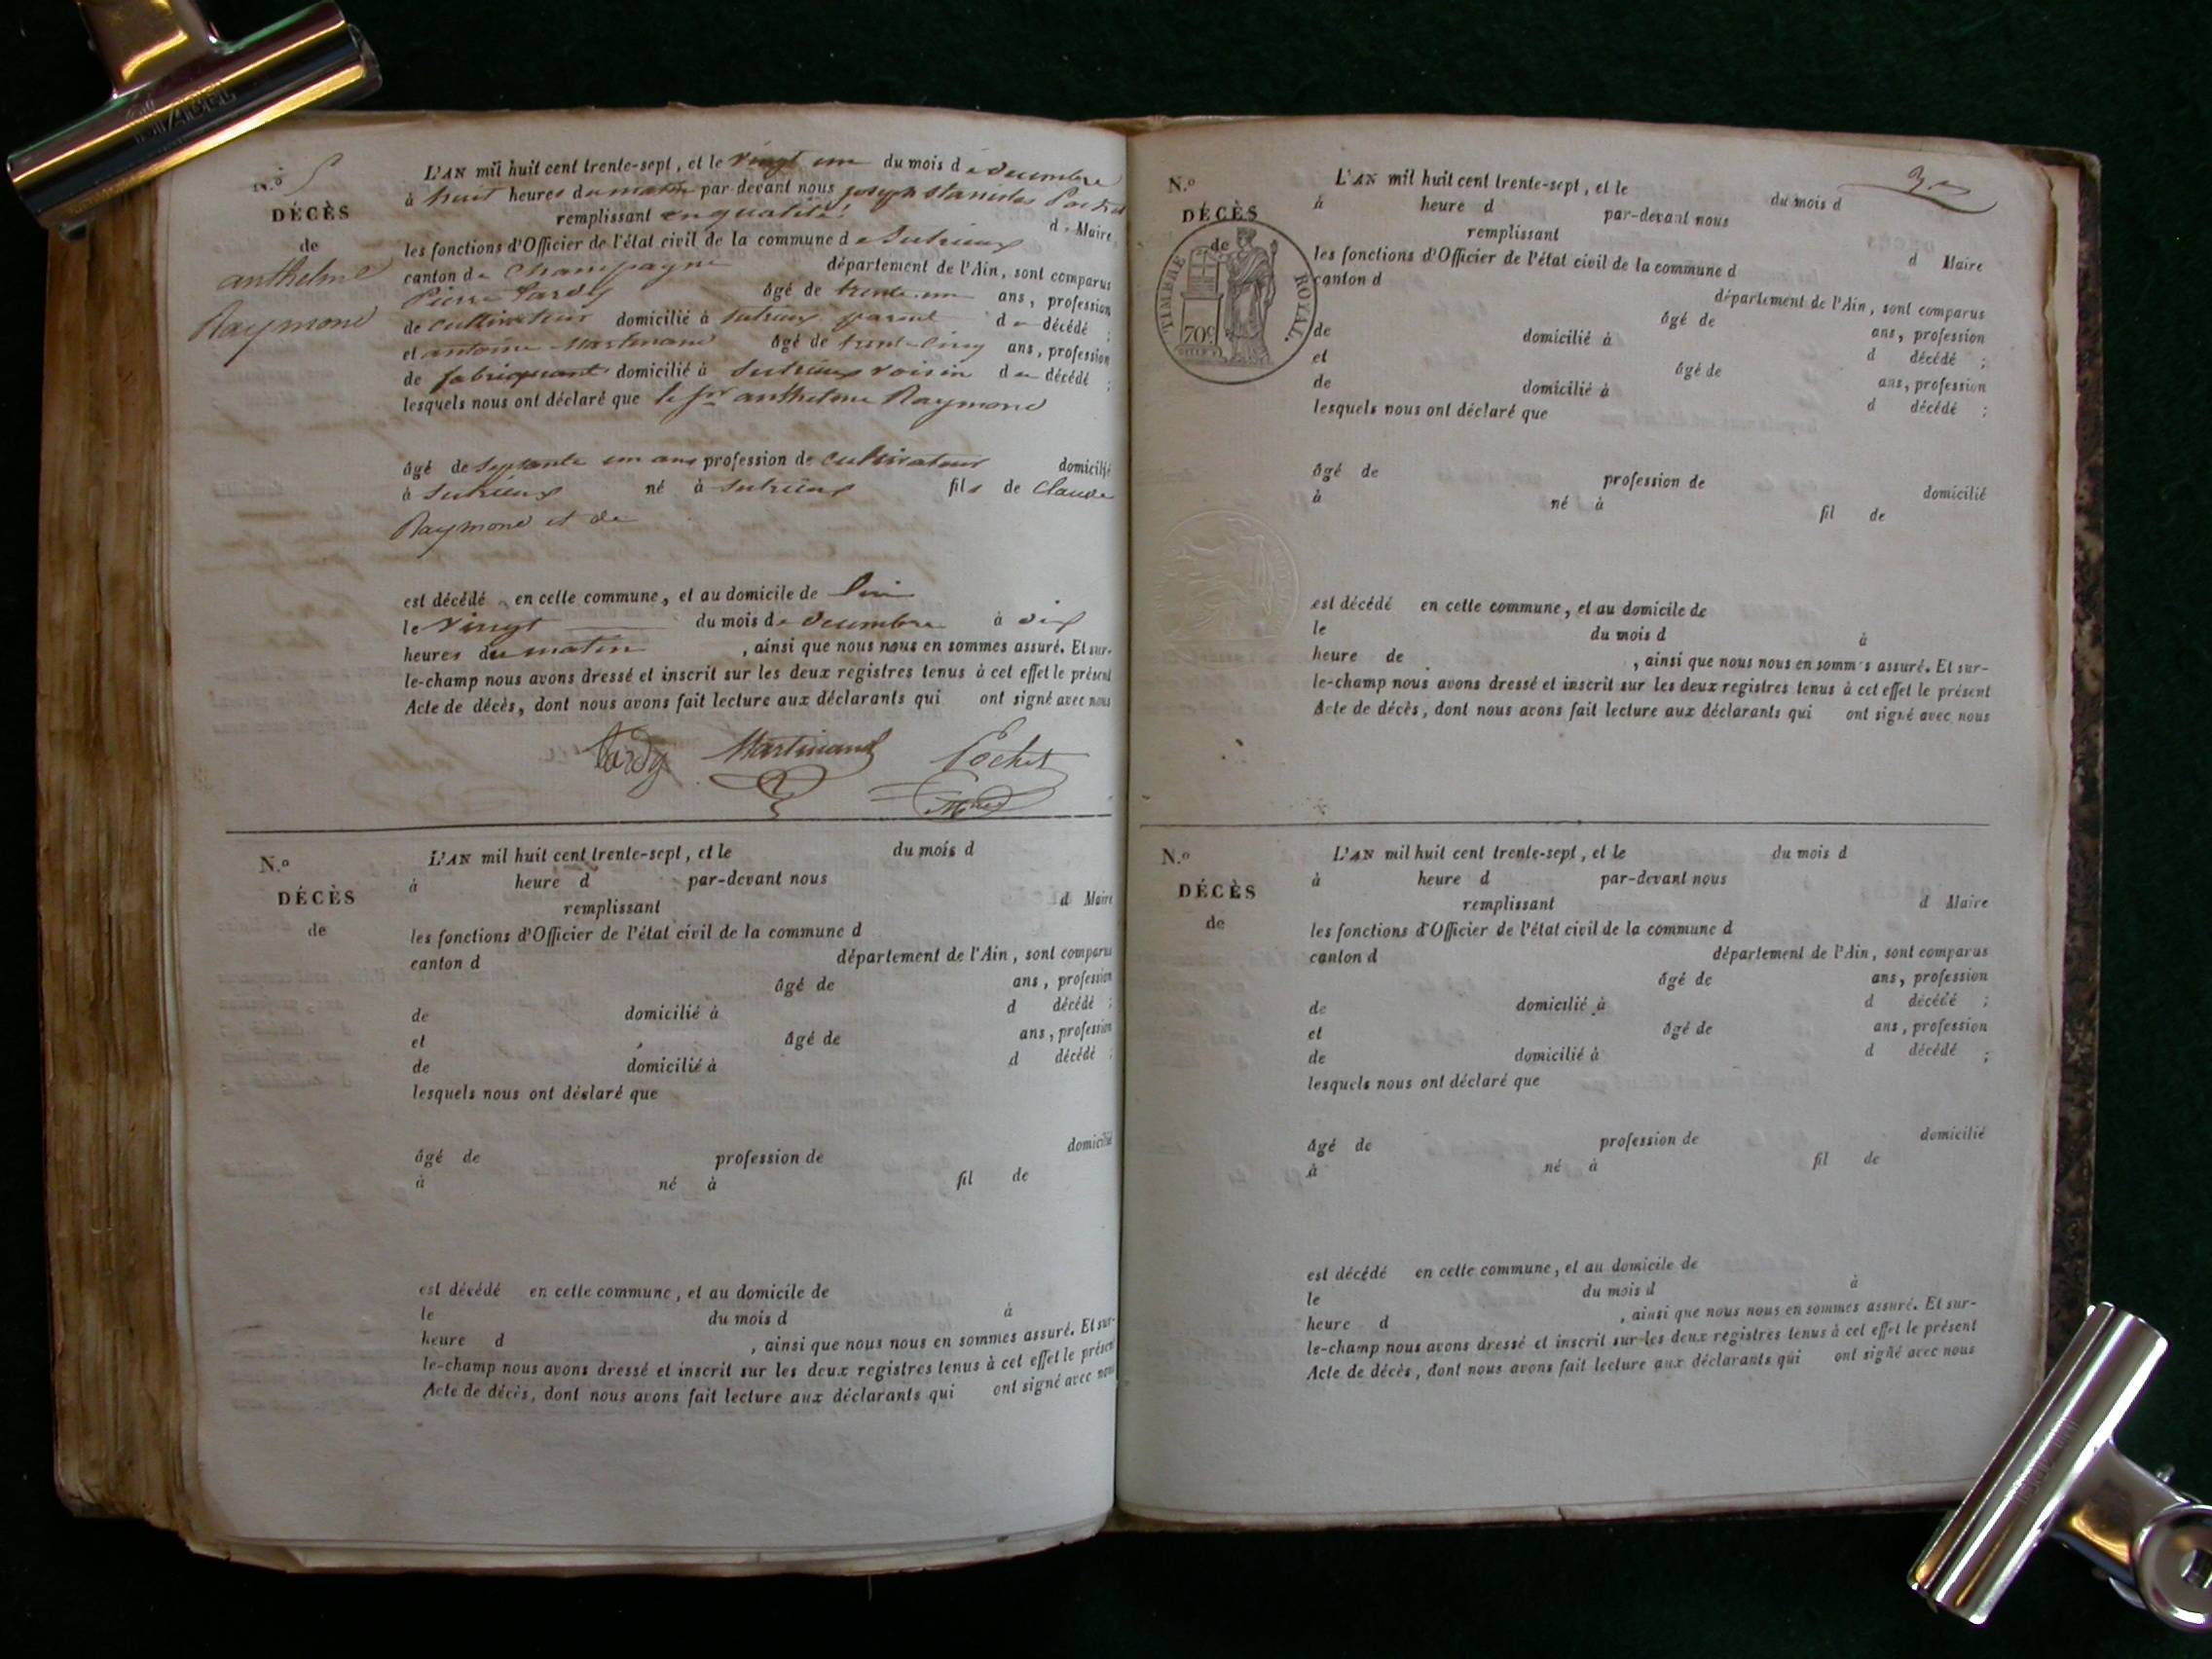 N.º 5
DÉCÈS
de
anthelme
Raymond
L'AN mil huit cent trente-sept, et le vingt un du mois de decembre
à huit heures du matin par-devant nous joseph Stanislas Pochet
remplissant en qualité d. Maire
les fonctions d'Officier de l'état civil de la commune de Sutrieux
canton de Champagne département de l'Ain, sont comparus
Pierre Tardy âgé de trente un ans, profession
de cultivateur domicilié à Sutrieux parent du décédé ;
et antoine Martinand âgé de trente-cinq ans, profession
de fabriquant domicilié à Sutrieux voisin du décédé ;
lesquels nous ont déclaré que le sr anthelme Raymond
âgé de septante un ans profession de cultivateur domicilié
à Sutrieux né à Sutrieux fils de Claude
Raymond et de
est décédé en cette commune, et au domicile de lui
le vingt du mois de decembre à dix
heures du matin , ainsi que nous nous en sommes assuré. Et sur-
le-champ nous avons dressé et inscrit sur les deux registres tenus à cet effet le présent
Acte de décès, dont nous avons fait lecture aux déclarants qui ont signé avec nous
Tardy Martinand Pochet
N.º
DÉCÈS
de
L'AN mil huit cent trente-sept, et le du mois d
à heure d par-devant nous
remplissant d Maire
les fonctions d'Officier de l'état civil de la commune d
canton d département de l'Ain, sont comparus
âgé de ans, profession
de domicilié à d décédé ;
et âgé de ans, profession
de domicilié à d décédé ;
lesquels nous ont déclaré que
âgé de profession de domicilié
à né à fil de
est décédé en cette commune, et au domicile de
le du mois d à
heure d , ainsi que nous nous en sommes assuré. Et sur-
le-champ nous avons dressé et inscrit sur les deux registres tenus à cet effet le présent
Acte de décès, dont nous avons fait lecture aux déclarants qui ont signé avec nous
N.º
DÉCÈS
de
TIMBRE ROYAL.
70c
L'AN mil huit cent trente-sept, et le du mois d
à heure d par-devant nous
remplissant d Maire
les fonctions d'Officier de l'état civil de la commune d
canton d département de l'Ain, sont comparus
âgé de ans, profession
de domicilié à d décédé ;
et âgé de ans, profession
de domicilié à d décédé ;
lesquels nous ont déclaré que
âgé de profession de domicilié
à né à fil de
est décédé en cette commune, et au domicile de
le du mois d à
heure de , ainsi que nous nous en sommes assuré. Et sur-
le-champ nous avons dressé et inscrit sur les deux registres tenus à cet effet le présent
Acte de décès, dont nous avons fait lecture aux déclarants qui ont signé avec nous
N.º
DÉCÈS
de
L'AN mil huit cent trente-sept, et le du mois d
à heure d par-devant nous
remplissant d Maire
les fonctions d'Officier de l'état civil de la commune d
canton d département de l'Ain, sont comparus
âgé de ans, profession
de domicilié à d décédé ;
et âgé de ans, profession
de domicilié à d décédé ;
lesquels nous ont déclaré que
âgé de profession de domicilié
à né à fil de
est décédé en cette commune, et au domicile de
le du mois d à
heure d , ainsi que nous nous en sommes assuré. Et sur-
le-champ nous avons dressé et inscrit sur les deux registres tenus à cet effet le présent
Acte de décès, dont nous avons fait lecture aux déclarants qui ont signé avec nous